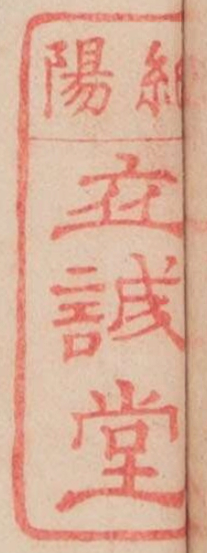 陽
立誠堂